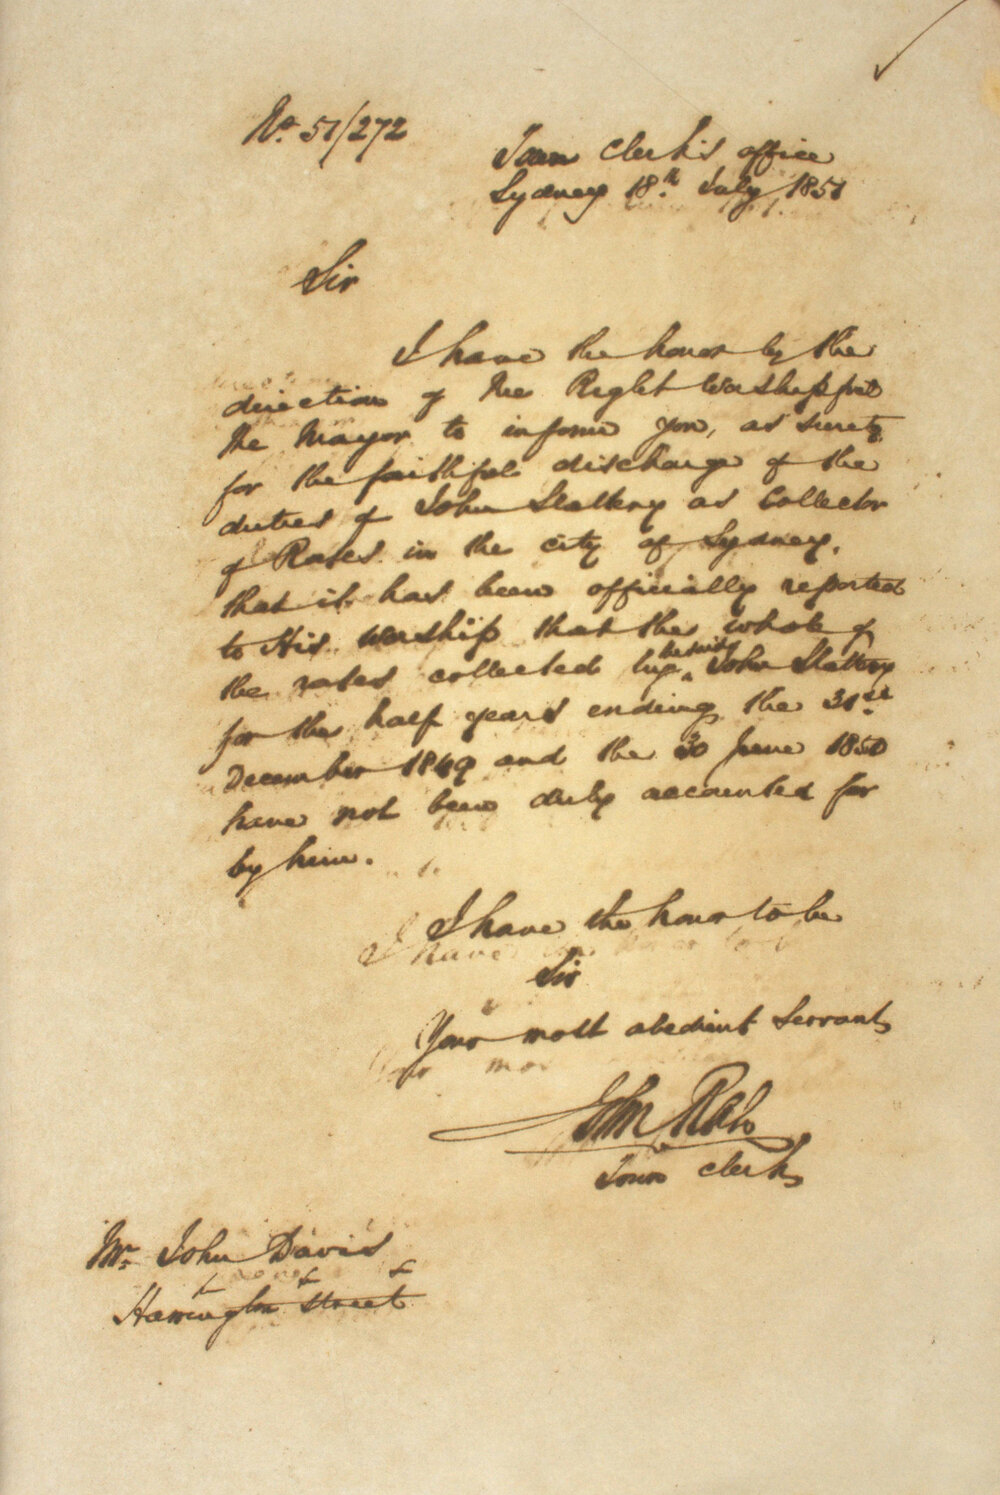 No. 51/272
Town Clerk's office
Sydney 18th July 1851
Sir
I have the honor by the
direction of The Right Worshipful
The Mayor to inform you, as surety
for the faithful discharge of the
duties of John Slattery as Collector
of Rates in the city of Sydney,
that it has been officially reported
to His Worship that the whole of
the rates collected by the said John Slattery
for the half years ending the 31st
December 1849 and the 30 June 1850
have not been duly accounted for
by him.
I have the honor to be
Sir
Your most obedient Servant
John Rae
Town Clerk
Mr. John Davis
Harrington Street